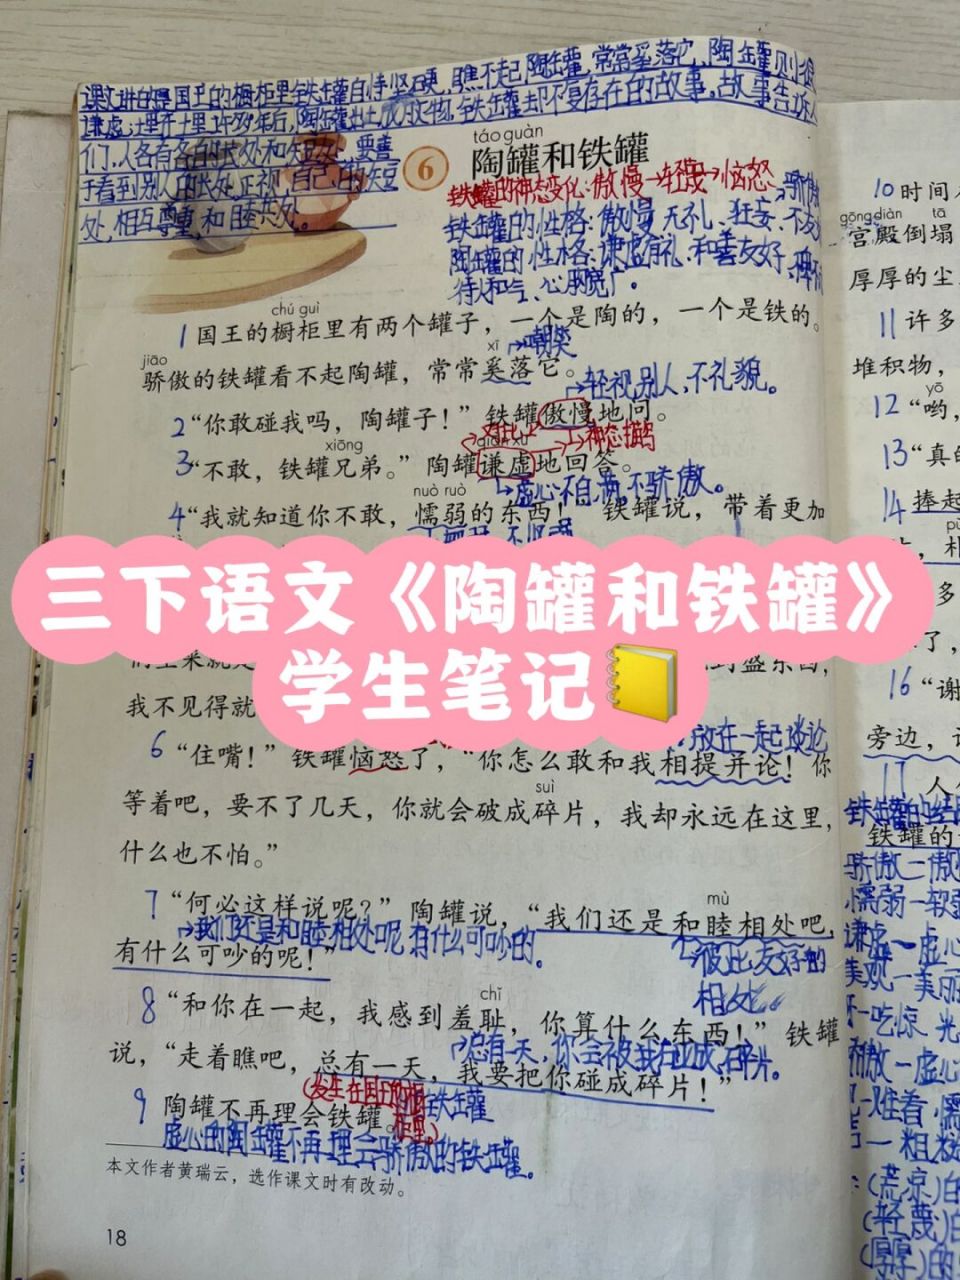 课文讲的是国王的橱柜里铁罐自恃坚硬,瞧不起陶罐,常常奚落它,陶罐则很
谦虚。过了许多年后,陶罐出土成为文物,铁罐却不复存在的故事。故事告诉人
们,人各有各的长处和短处,要善
于看到别人的长处,正视自己的短
处,相互尊重,和睦共处。
táo guàn
6 陶罐和铁罐
铁罐的神态变化:傲慢→轻蔑→恼怒
→骄傲
铁罐的性格:傲慢无礼、狂妄、不友
陶罐的性格:谦虚有礼、和善友好、
待人和气、心胸宽广。
chú guì
1 国王的橱柜里有两个罐子,一个是陶的,一个是铁的。
jiāo xī →嘲笑
骄傲的铁罐看不起陶罐,常常奚落它。
→轻视别人,不礼貌。
2 “你敢碰我吗,陶罐子!”铁罐傲慢地问。
xiōng 对比 qiān xū →神态描写
3 “不敢,铁罐兄弟。”陶罐谦虚地回答。
nuò ruò →虚心,不自满,不骄傲。
4 “我就知道你不敢,懦弱的东西!”铁罐说,带着更加
三下语文《陶罐和铁罐》
学生笔记
我不见得就
→放在一起谈论
6 “住嘴!”铁罐恼怒了,“你怎么敢和我相提并论!你
suì
等着吧,要不了几天,你就会破成碎片,我却永远在这里,
什么也不怕。”
mù
7 “何必这样说呢?”陶罐说,“我们还是和睦相处吧,
→我们还是和睦相处呢,有什么可吵的。
有什么可吵的呢!”
→彼此友好的
相处。
chǐ
8 “和你在一起,我感到羞耻,你算什么东西!”铁罐
→总有一天,你会被我碰成碎片。
说,“走着瞧吧,总有一天,我要把你碰成碎片!”
(发生在国王的橱柜里。)
9 陶罐不再理会铁罐。
虚心的陶罐不再理会骄傲的铁罐。
本文作者黄瑞云,选作课文时有改动。
18
10 时间
gōng diàn tā
宫殿倒塌
厚厚的尘
11 许多
堆积物,
yō
12 “哟,
13 “真的
14 捧起
多
了,
16 “谢
旁边,
17 人
铁罐的结
铁罐的
骄傲—傲
懦弱—软弱
谦虚—虚心
美观—美丽
—吃惊 光
—虚心
—粗
(荒凉)的
(轻蔑)的
(厚厚)的